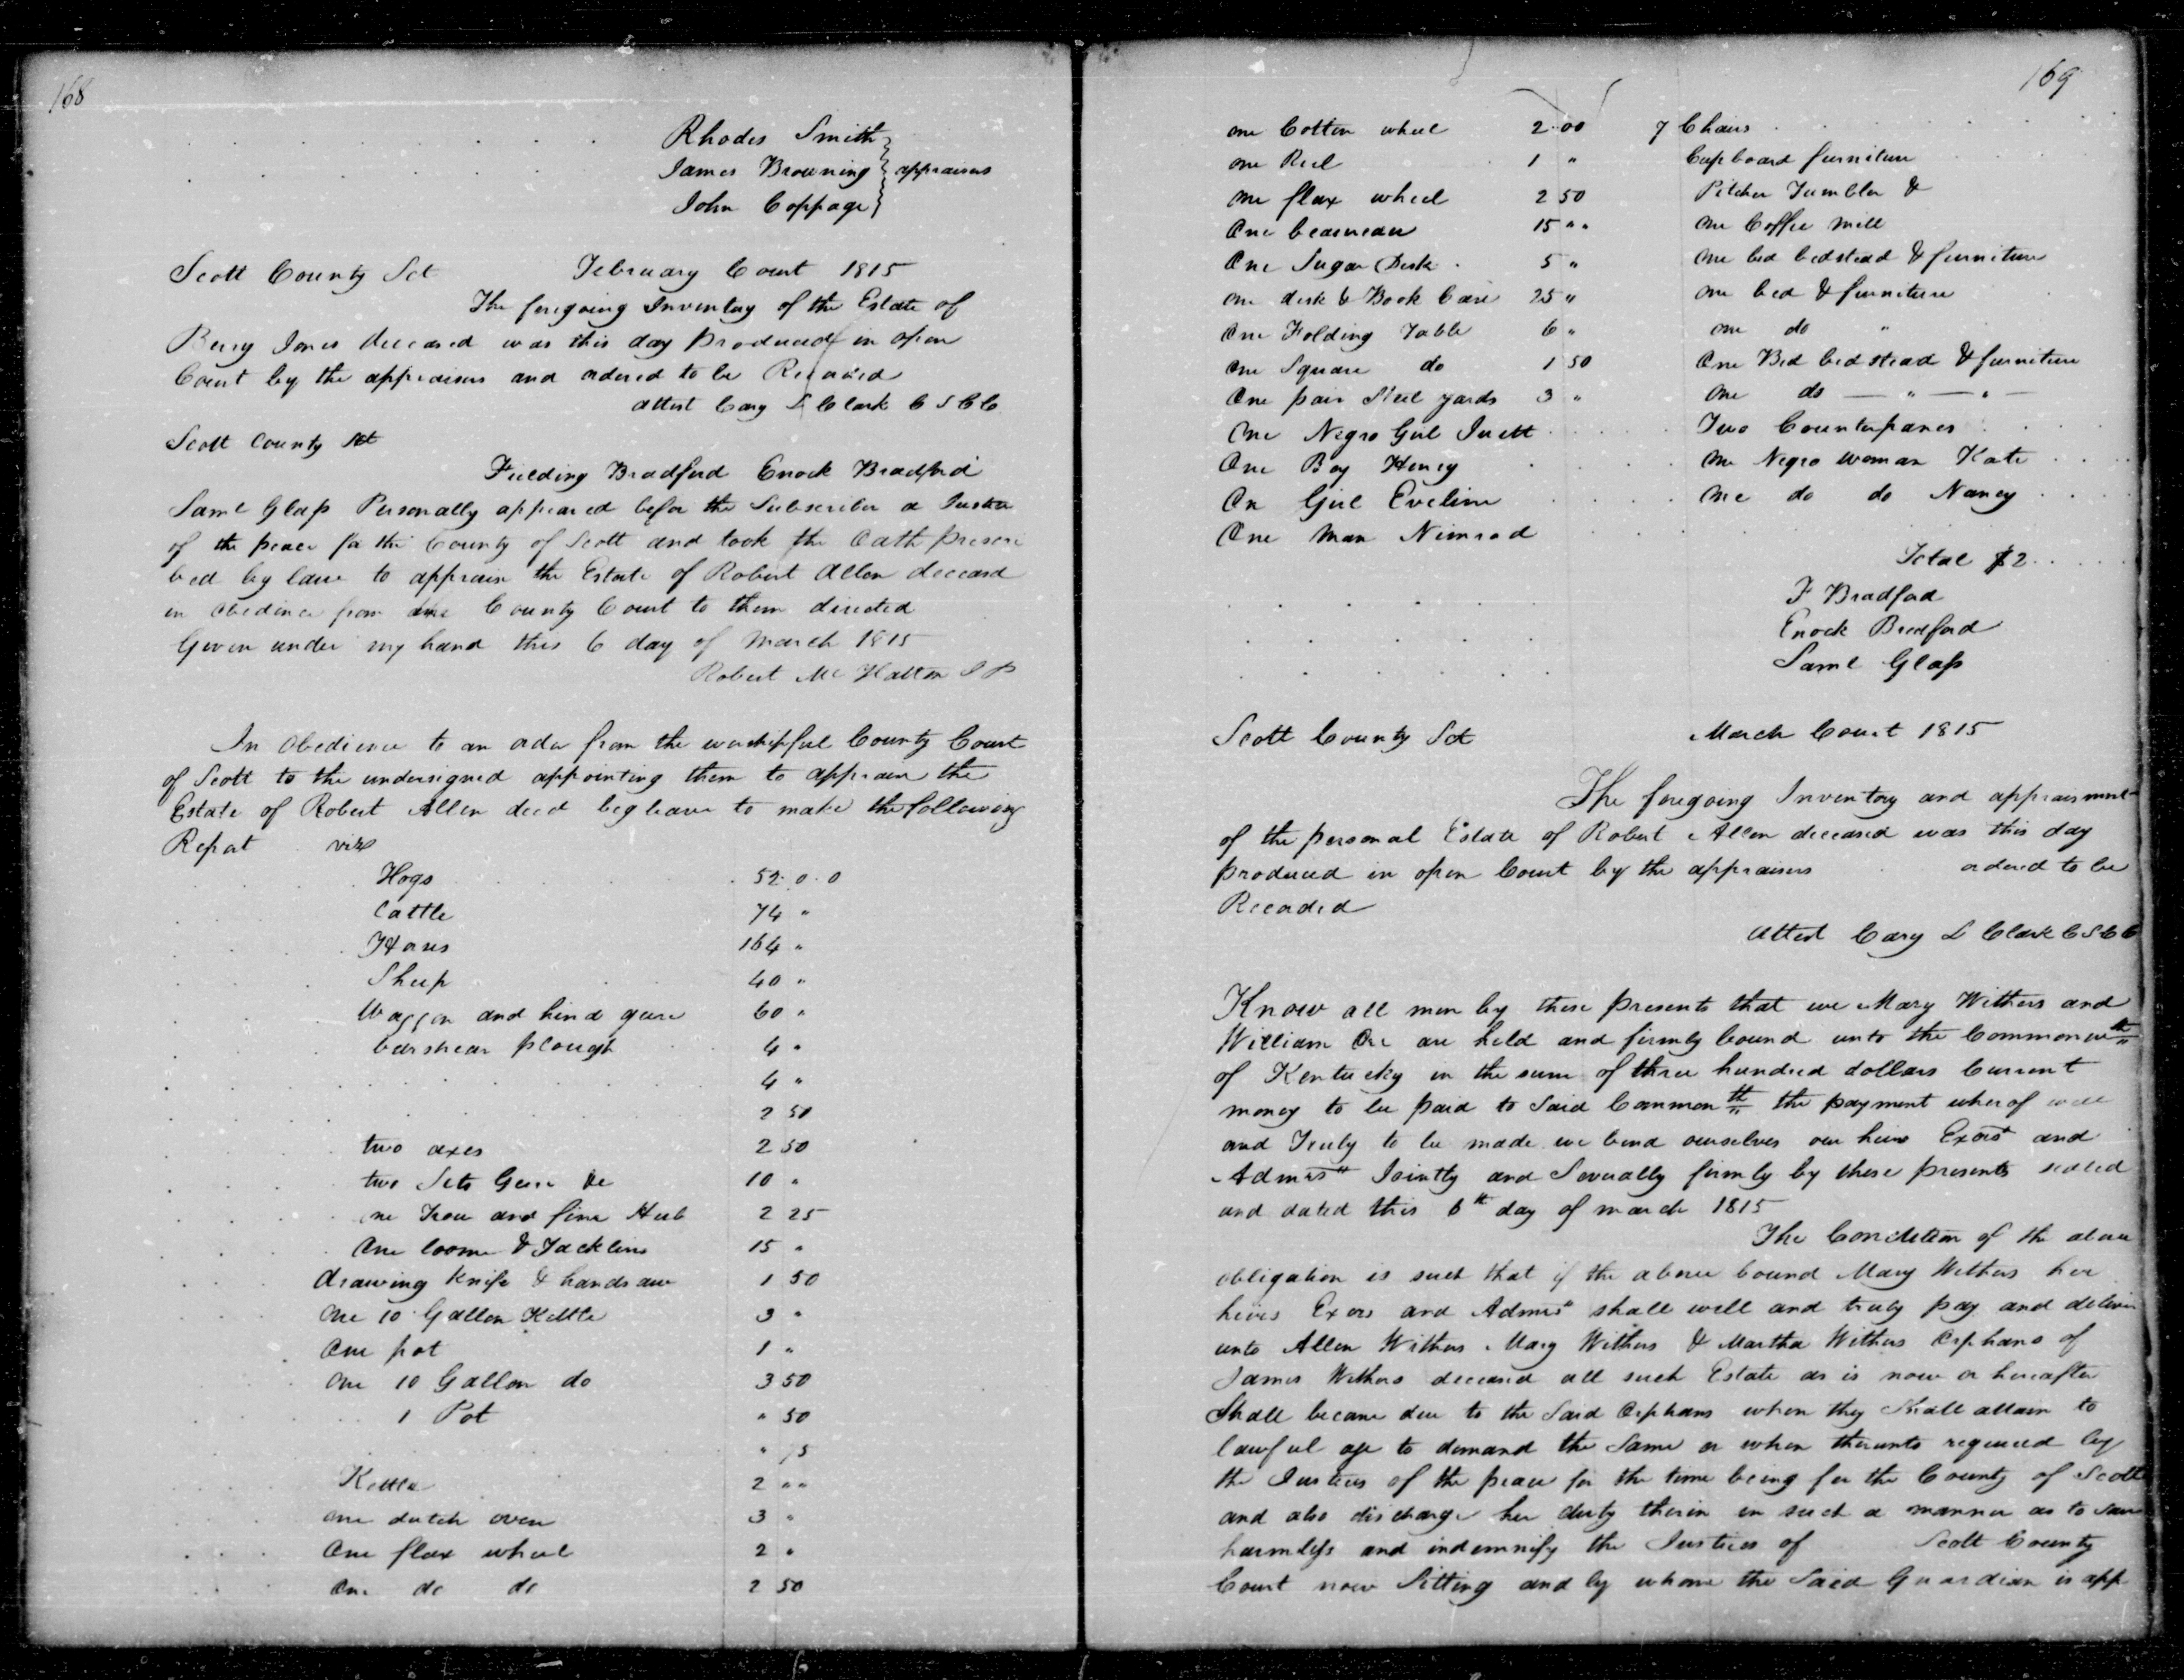 168
Rhodes Smith
James Browning } appraisers
John Coppage
Scott County Sct February Court 1815
The foregoing Inventory of the Estate of
Berry Jones deceased was this day Produced in open
Court by the appraisers and ordered to be Recorded
attest Cary L Clark C S C C
Scott County Sct
Fielding Bradford Enock Bradford
Saml Glass Personally appeared before the Subscriber a Justice
of the peace for the County of Scott and took the Oath prescri
bed by law to appraise the Estate of Robert Allen deceasd
in obedience from County Court to them directed
Given under my hand this 6 day of March 1815
Robert Mc Hatton J P
In obedience to an order from the worshipful County Court
of Scott to the undersigned appointing them to appraise the
Estate of Robert Allen decd beg leave to make the following
Report viz
Hogs 52.0.0
Cattle 74 "
Horses 164 "
Sheep 40 "
Waggon and hind geare 60 "
barshear plough 4 "
4 "
2 50
two axes 2 50
two Sets Gear &c 10 "
one 2 25
One loome & Tacklins 15 "
drawing knife & handsaw 1 50
One 10 Gallon Kettle 3 "
One pot 1 "
One 10 Gallon do 3 50
1 Pot " 50
" 75
Kettle 2 ""
one dutch oven 3 "
One flax wheel 2 "
One do do 2 50
169
one Cotton wheel 2.00 7 Chairs
one Reel 1 " Cupboard furniture
one flax wheel 2 50 Pitcher Tumbler &
One beaureau 15 "" one Coffee mill
One Sugar Desk 5 " one bed bedstead & furniture
one desk & Book Case 25 " one bed & furniture
One Folding Table 6 " one do "
One Square do 1 50 One Bed bedstead & furniture
One pair Steel yards 3 " One do — " — " —
One Negro Girl Two Counterpanes
One Boy Henry one Negro woman Kate
On Girl Eveline one do do Nancy
One Man Nimrod
Total $2
F Bradford
Enock Bradford
Saml Glass
Scott County Sct March Court 1815
The foregoing Inventory and appraisment
of the personal Estate of Robert Allen deceased was this day
produced in open Court by the appraisers ordered to be
Recorded
Attest Cary L Clark C S C C
Know all men by these presents that we Mary Withers and
William Orr are held and firmly bound unto the Commonwth
of Kentucky in the sum of three hundred dollars Current
money to be paid to said Common th the payment wherof well
and Truly to be made we bind ourselves our heirs Exors and
Admrs Jointly and Severally firmly by these presents sealed
and dated this 6th day of march 1815
The Condition of the above
obligation is such that if the above bound Mary Withers her
heirs Exors and Admrs shall well and truly pay and deliver
unto Allen Withers Mary Withers & Martha Withers Orphans of
James Withers deceased all such Estate as is now or hereafter
Shall become due to the Said Orphans when they Shall attain to
lawful age to demand the Same or when therunto required by
the Justices of the peace for the time being for the County of Scott
and also discharge her duty therin in such a manner as to save
harmless and indemnify the Justices of Scott County
Court now Sitting and by whom the Said Guardian is app